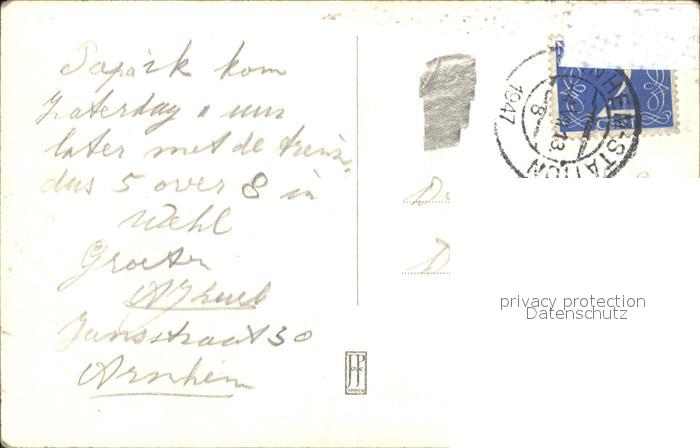 Papa ik kom
Zaterdag 1 uur
later met de trein
dus 5 over 8 in
Wehl
Groeten
Jansstraat 30
Arnhem
1947
STATION
privacy protection
Datenschutz